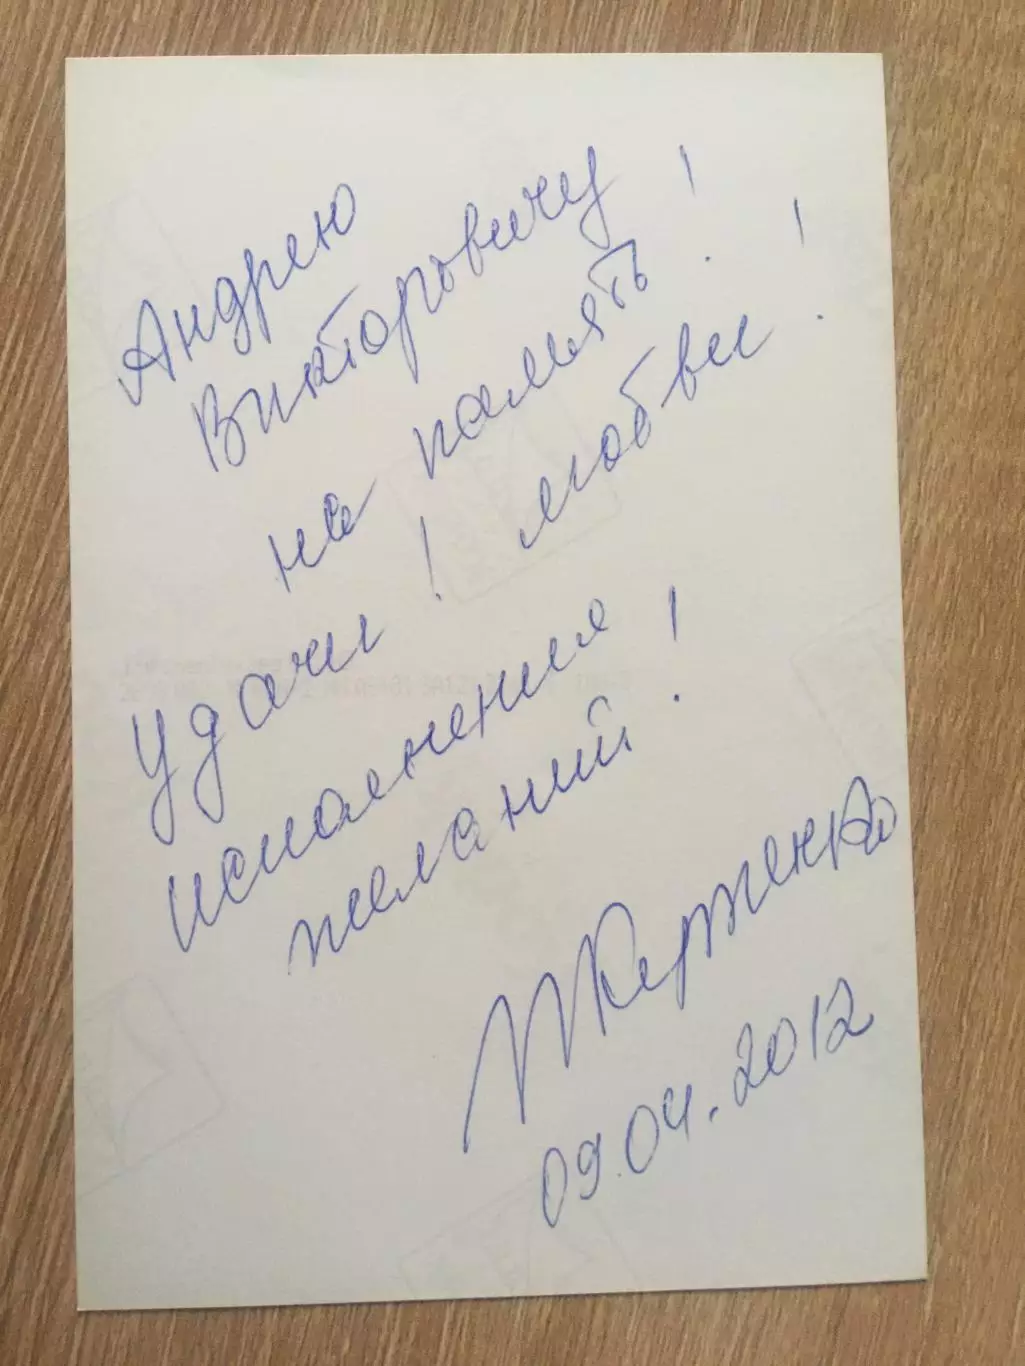 Андрею
Викторовичу
на память!
Удачи! любви!
исполнения
желаний!
09.04.2012